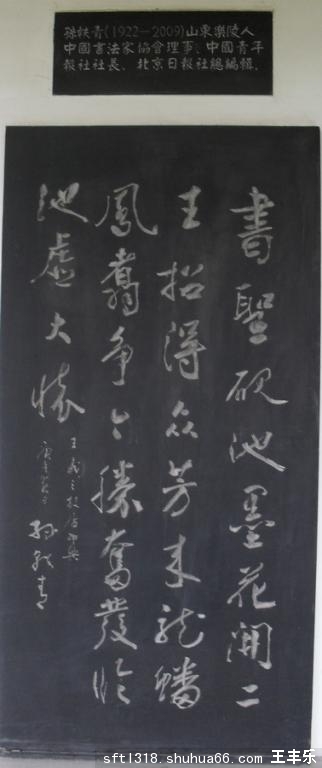 孫軼青(1922—2009)山東樂陵人
中國書法家協會理事、中國青年
報社社長、北京日報社總編輯。
書聖硯池墨花開二
王招得众芳来龍蟠
鳳翥争今勝奮發臨
池虛大懷
王羲之故居即興
孙軼青
sftl318.shuhua66.com 王丰乐